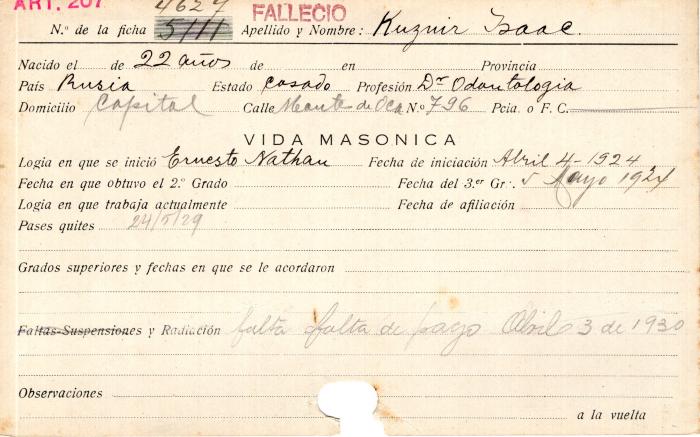 ART. 207 4627 FALLECIO
N.º de la ficha 5111 Apellido y Nombre: Kuznir Isaac.
Nacido el de 22 años de en Provincia
País Rusia Estado casado Profesión Dr Odontologia
Domicilio Capital Calle Montes de Oca N.º 796 Pcia. o F. C.
VIDA MASONICA
Logia en que se inició Ernesto Nathan Fecha de iniciación Abril 4-1924
Fecha en que obtuvo el 2.º Grado Fecha del 3.er Gr. 5 Mayo 1924
Logia en que trabaja actualmente Fecha de afiliación
Pases quites 24/5/29
Grados superiores y fechas en que se le acordaron
Faltas-Suspensiones y Radiación falta falta de pago Abril 3 de 1930
Observaciones
a la vuelta